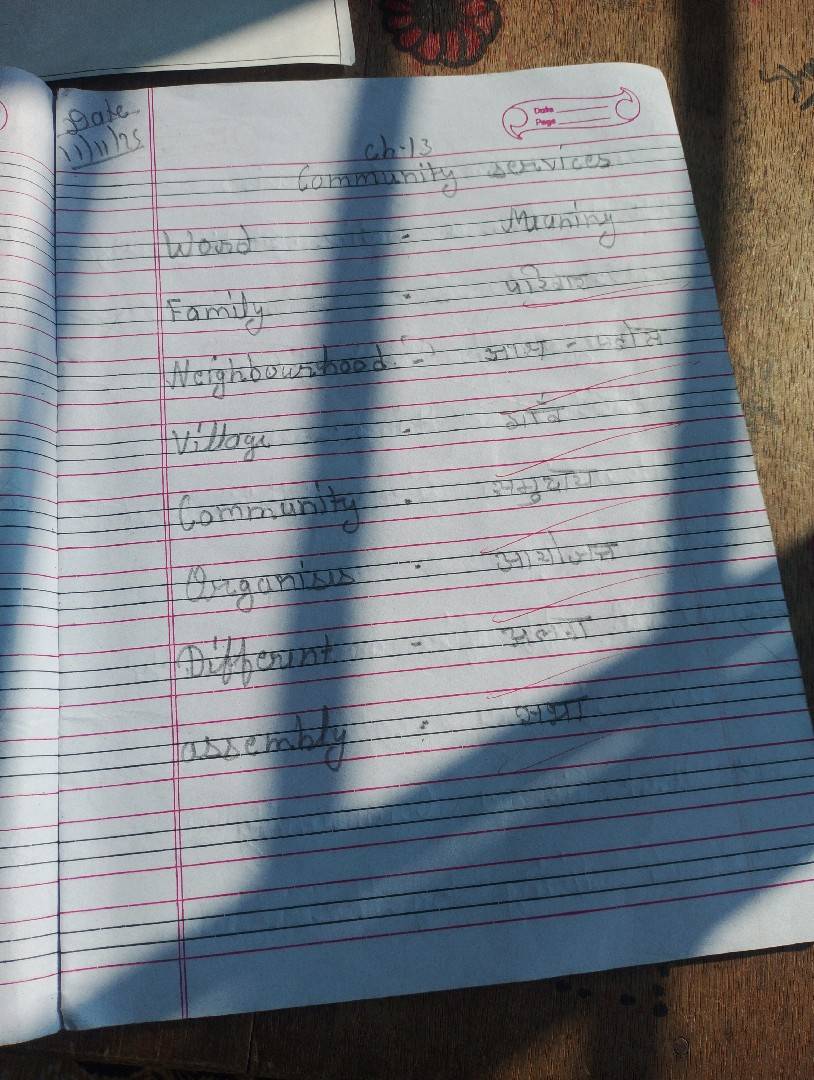 Date
11/11/25
Date
Page
Ch-13
Community services
Word - Meaning
Family - परिवार
Neighbourhood - आस - पड़ोस
Village - गाँव
Community - समुदाय
Organises - आयोजन
Different - अलग
assembly : सभा